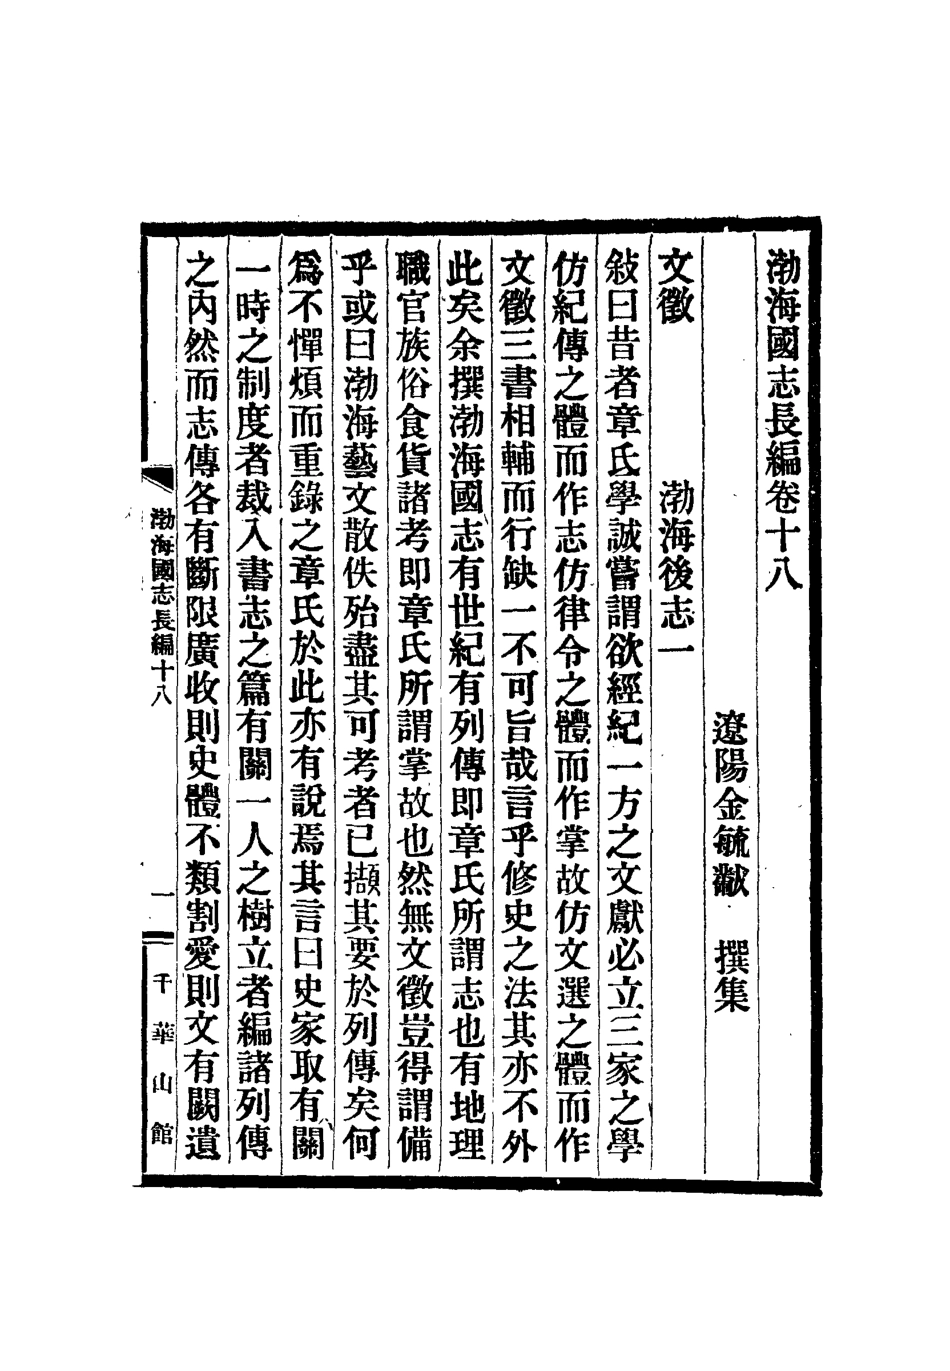 渤海國志長編卷十八
遼陽金毓黻　撰集
文徵　　渤海後志一
敍曰昔者章氏學誠嘗謂欲經紀一方之文獻必立三家之學
仿紀傳之體而作志仿律令之體而作掌故仿文選之體而作
文徵三書相輔而行缺一不可旨哉言乎修史之法其亦不外
此矣余撰渤海國志有世紀有列傳即章氏所謂志也有地理
職官族俗食貨諸考即章氏所謂掌故也然無文徵豈得謂備
乎或曰渤海藝文散佚殆盡其可考者已擷其要於列傳矣何
爲不憚煩而重錄之章氏於此亦有說焉其言曰史家取有關
一時之制度者裁入書志之篇有關一人之樹立者編諸列傳
之內然而志傳各有斷限廣收則史體不類割愛則文有闕遺
渤海國志長編十八
一
千華山館